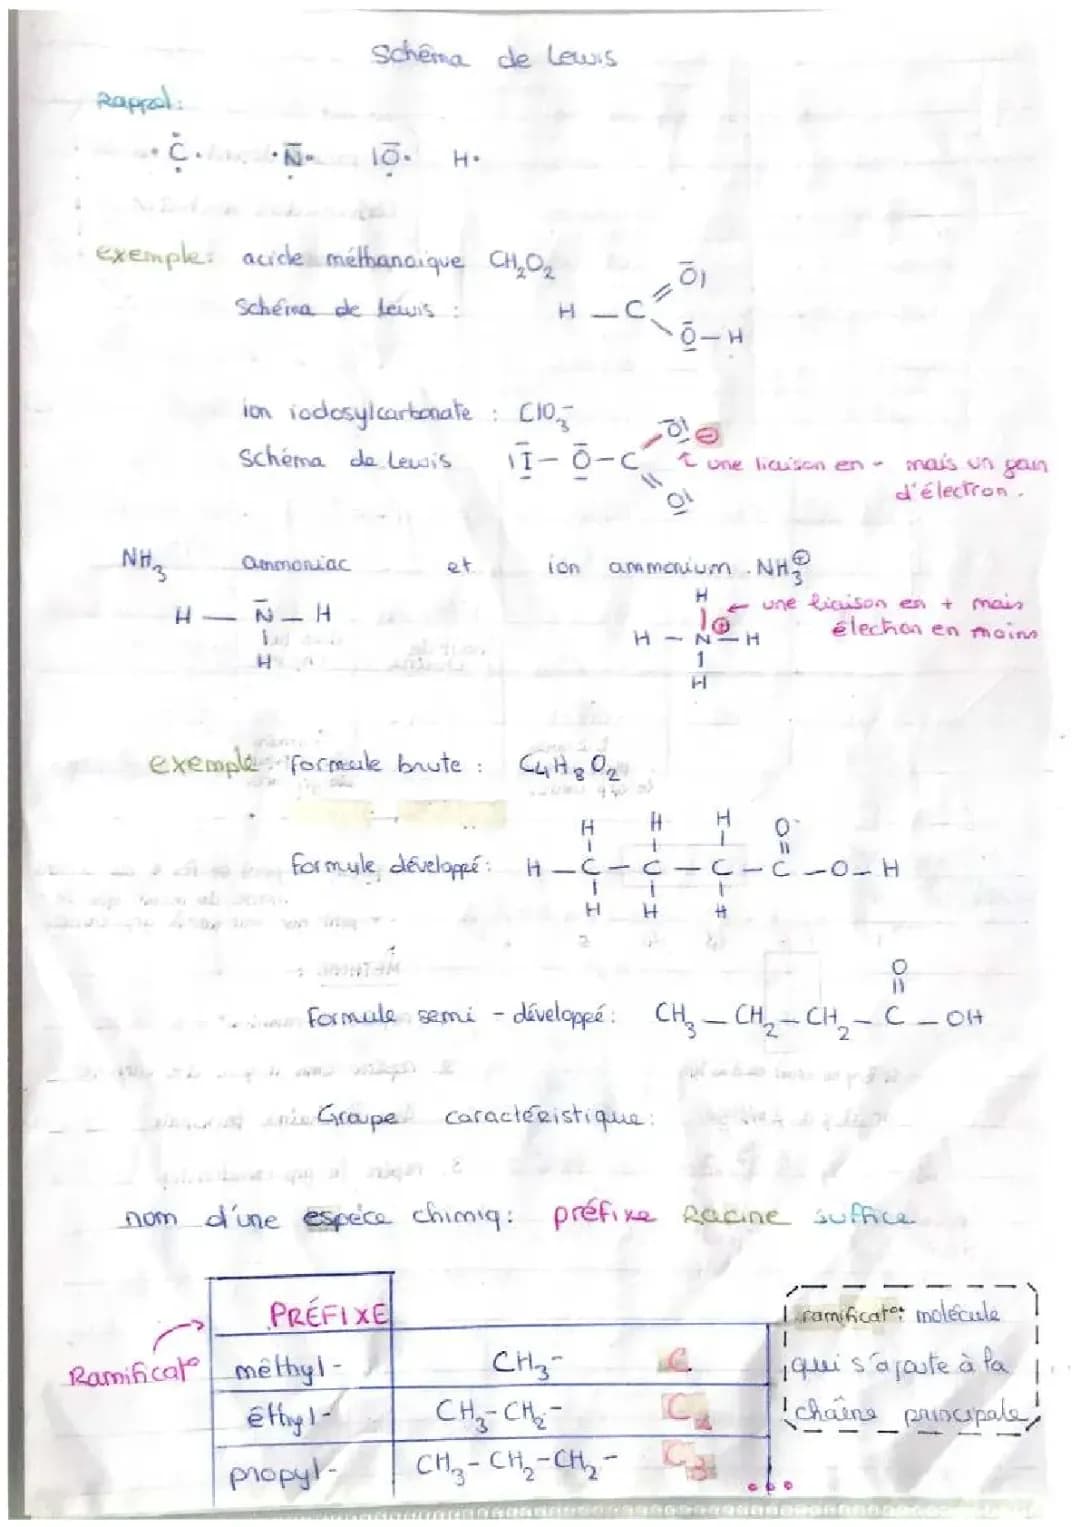 Schéma de Lewis
Rappel:
·C· ·N· |O· H·
exemple: acide méthanoïque CH₂O₂
Schéma de Lewis :
H — C
O|
O — H
ion iodosylcarbonate : CIO₃⁻
Schéma de Lewis |I — O — C
O| ⊖
O|
une liaison en - mais un gain
d'électron.
NH₃ ammoniac et ion ammonium NH₃⊕
H — N — H
H
H
H — N — H ⊕
H
une liaison en + mais
électron en moins
exemple: formule brute : C₄H₈O₂
H H H O
formule développé : H — C — C — C — C — O — H
H H H
O
Formule semi - développé : CH₃ — CH₂ — CH₂ — C — OH
Groupe caractéristique:
nom d'une espéce chimiq: préfixe Racine suffice
PRÉFIXE
Ramificat°
méthyl - CH₃- C
éthyl - CH₃-CH₂- C₂
propyl - CH₃-CH₂-CH₂- C₃
ramificat°: molécule
qui s'ajoute à la
chaîne principale